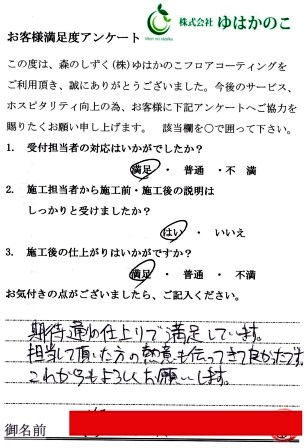 株式会社 ゆはかのこ
お客様満足度アンケート
この度は、森のしずく(株)ゆはかのこフロアコーティングを
ご利用頂き、誠にありがとうございました。今後のサービス、
ホスピタリティ向上の為、お客様に下記アンケートへご協力を
賜りたくお願い申し上げます。 該当欄を○で囲って下さい。
1. 受付担当者の対応はいかがでしたか?
満足 ・ 普通 ・ 不 満
2. 施工担当者から施工前・施工後の説明は
しっかりと受けましたか?
はい ・ いいえ
3. 施工後の仕上がりはいかがですか?
満足 ・ 普通 ・ 不満
お気付きの点がございましたら、ご記入ください。
期待通りの仕上りで満足しています。
担当して頂いた方の熱意も伝ってきて良かったです。
これからもよろしくお願いします。
御名前